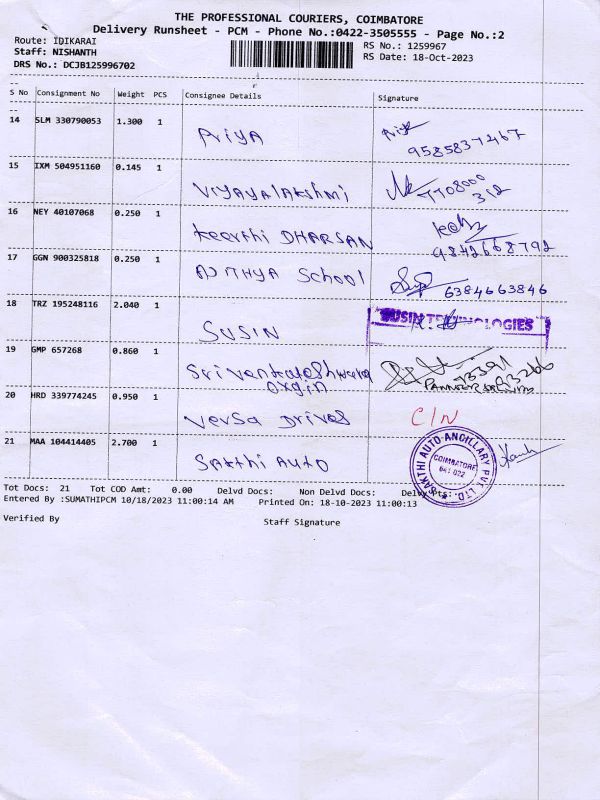 THE PROFESSIONAL COURIERS, COIMBATORE
Delivery Runsheet - PCM - Phone No.:0422-3505555 - Page No.:2
Route: IDIKARAI
RS No.: 1259967
Staff: NISHANTH
RS Date: 18-Oct-2023
DRS No.: DCJB125996702
S No Consignment No Weight PCS Consignee Details Signature
14 SLM 330790053 1.300 1 Priya Priya
9585837267
15 IXM 504951160 0.145 1 Vijayalakshmi 7708000
312
16 NEY 40107068 0.250 1 Keerthi DHARSAN
9842668792
17 GGN 900325818 0.250 1 AJITHYA School 6384663846
18 TRZ 195248116 2.040 1 SUSIN SUSIN TECHNOLOGIES
19 GMP 657268 0.860 1 Sri Venkateshwara
orgin
20 HRD 339774245 0.950 1 Versa Drives C/N
21 MAA 104414405 2.700 1 SAKthi AUTO
SAKTHI AUTO-ANCILLARY PVT. LTD.
COIMBATORE
641 022
Tot Docs: 21 Tot COD Amt: 0.00 Delvd Docs: Non Delvd Docs:
Entered By :SUMATHIPCM 10/18/2023 11:00:14 AM Printed On: 18-10-2023 11:00:13
Verified By
Staff Signature